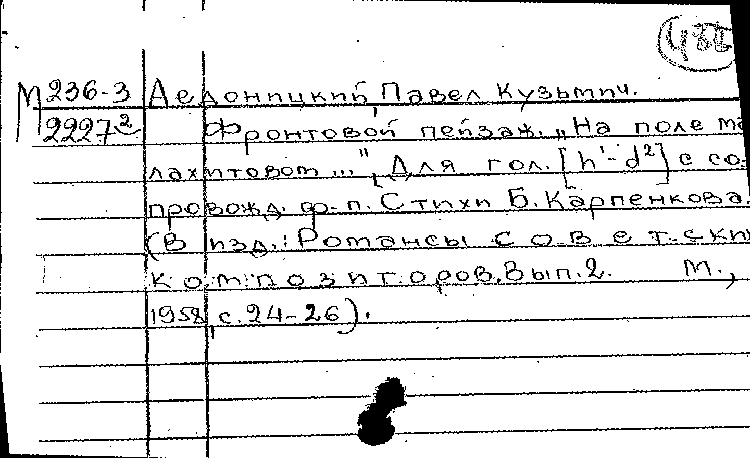 М 236-3 Дедоницкий, Павел Кузьмич.
2227² Фронтовой пейзаж. „На поле ма-
лахитовом...", Для гол. [h'-d²] с со-
провожд. ф-п. Стихи Б. Карпенкова.
(В изд.: Романсы советски
композиторов. Вып. 2. М.,
1958, с. 24-26).